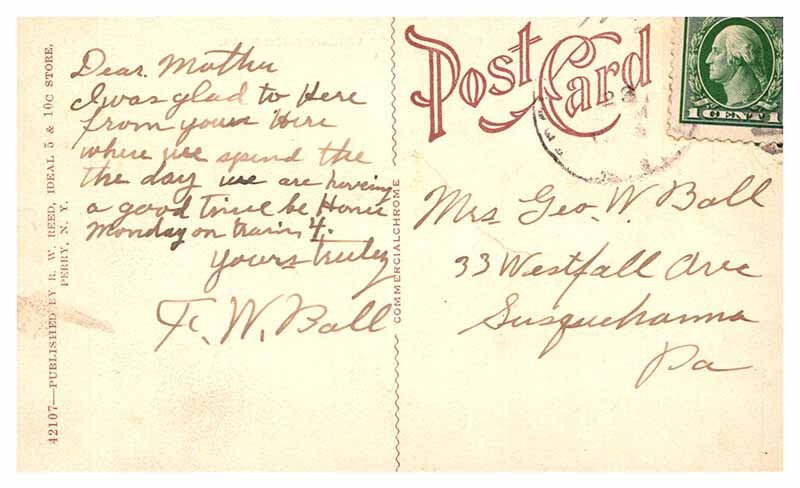 42107—PUBLISHED BY R. W. REED, IDEAL 5 & 10C STORE,
PERRY, N. Y.
Dear. Mother
I was glad to Here
from your Here
where we spend the
the day we are haveing
a good time be Home
Monday on train 4.
Yours truley
F. W. Ball
COMMERCIALCHROME
Post Card
1 CENT 1
Mrs Geo. W. Ball
33 Westfall Ave
Susquehanna
Pa